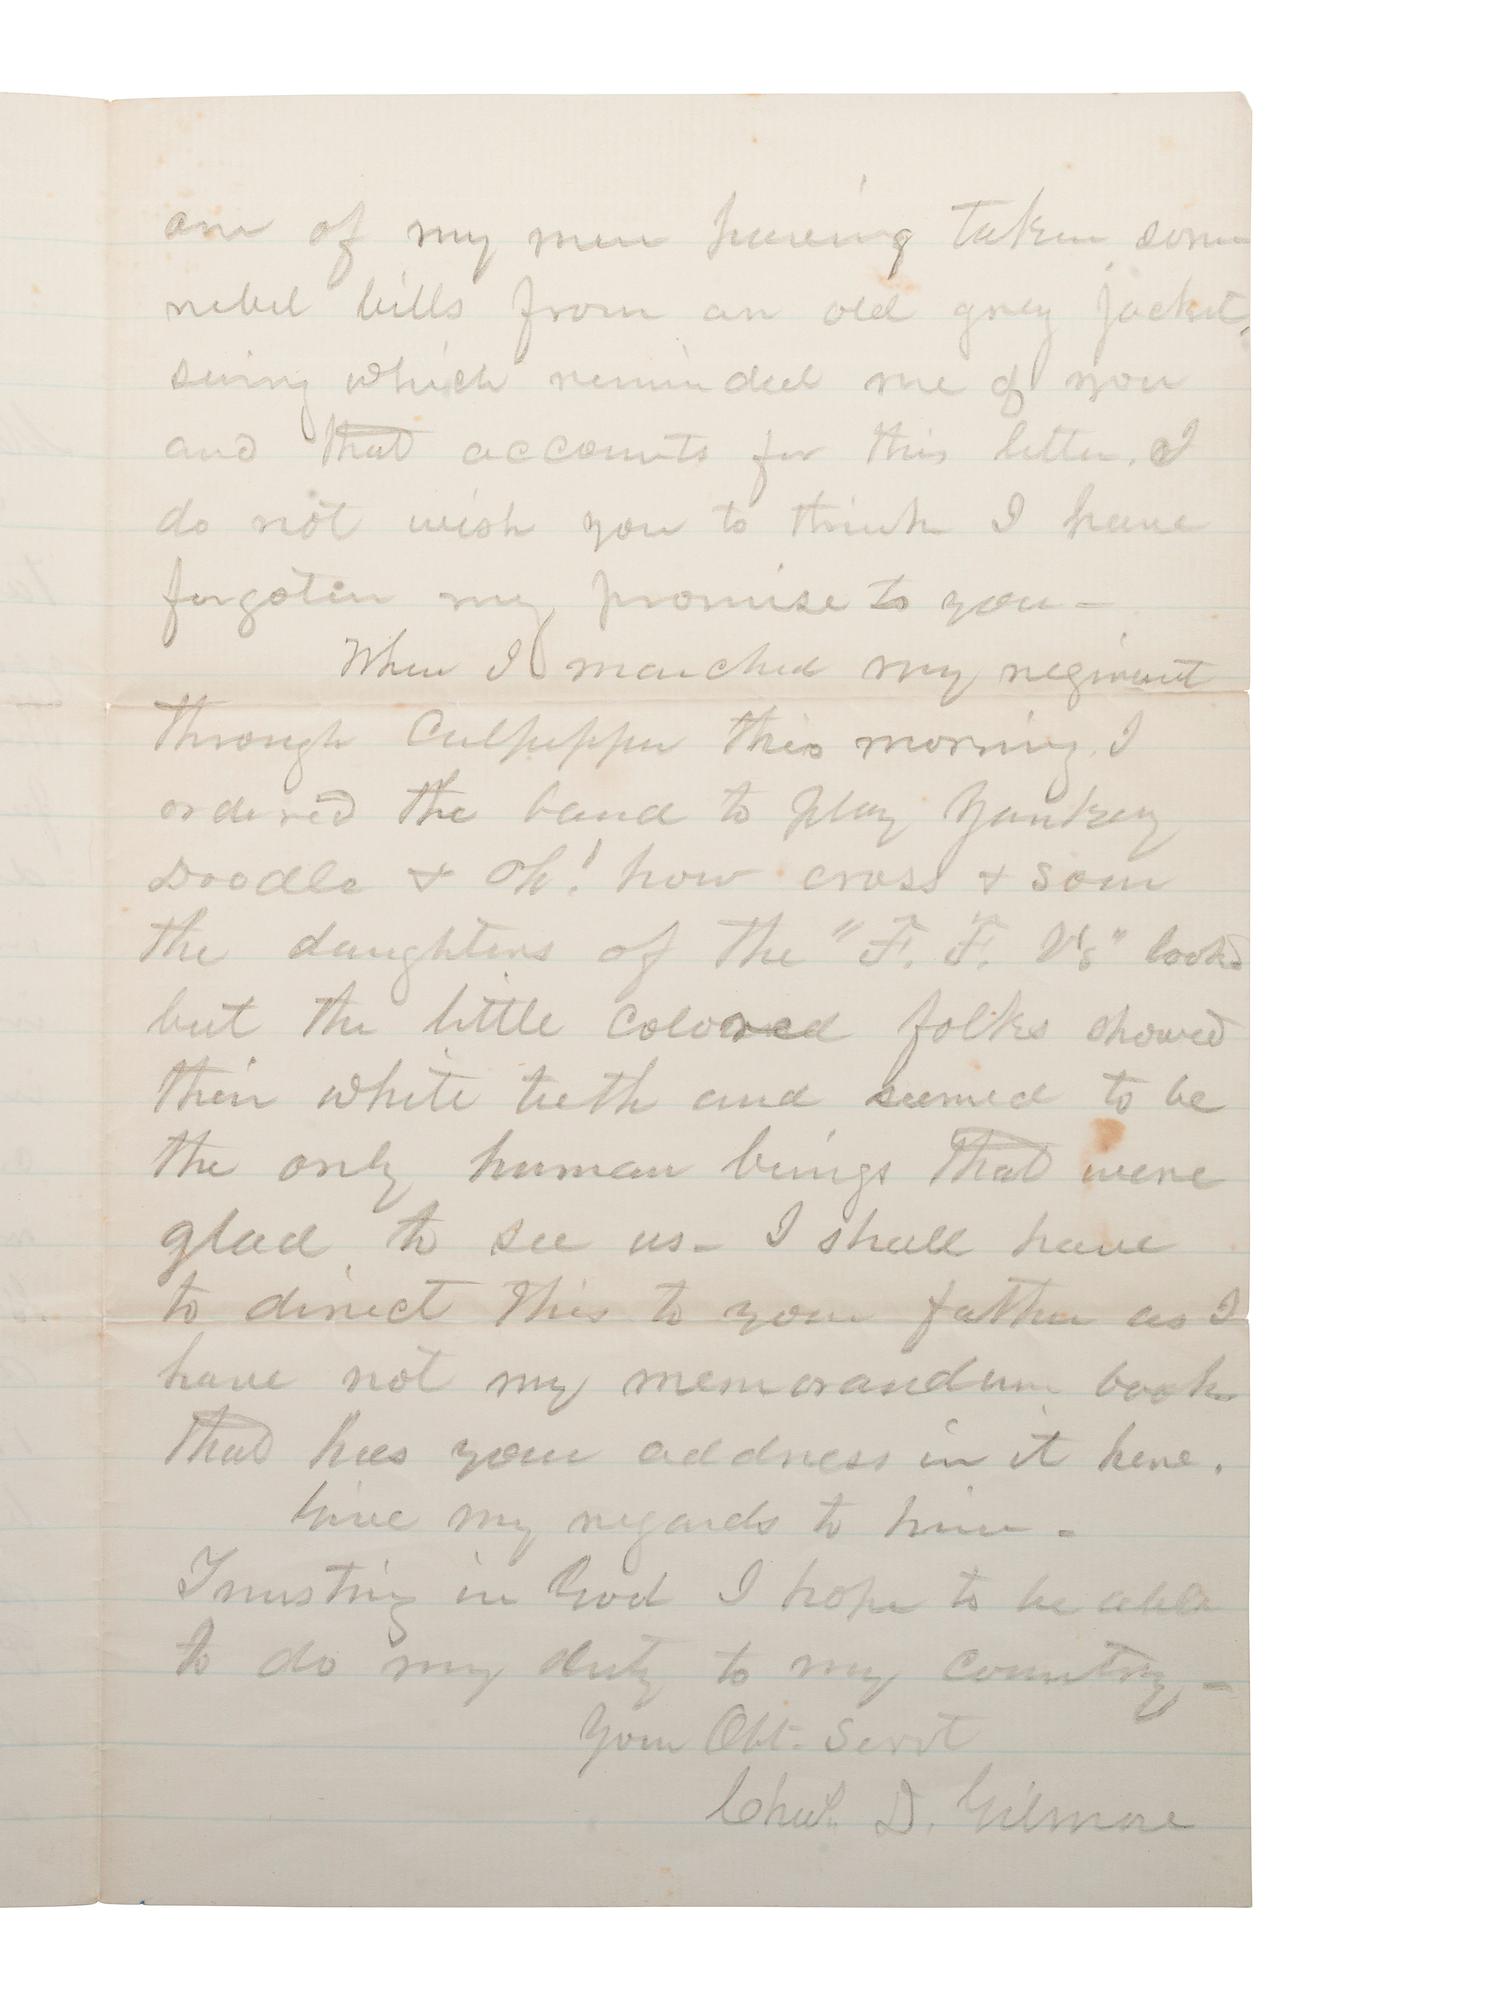 one of my men having taken some
rebel bills from an old grey jacket,
seing which reminded me of you
and that accounts for this letter. I
do not wish you to think I have
forgoten my promise to you –
When I marched my regiment
through Culpepper this morning. I
ordered the band to play Yankey
Doodle & Oh! how cross & sour
the daughters of the "F. F. V's" looked
but the little colored folks showed
their white teeth and seemed to be
the only human beings that were
glad to see us – I shall have
to direct this to your father as I
have not my memorandum book
that has your address in it here.
Give my regards to him –
Trusting in God I hope to be able
to do my duty to my country –
Your Obt. Servt
Chas. D. Gilmore